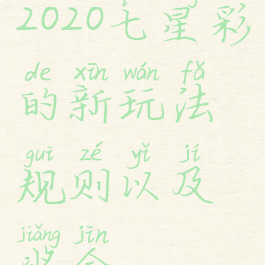 2020七星彩
de xīn wán fǎ
的新玩法
guī zé yǐ jí
规则以及
jiǎng jīn